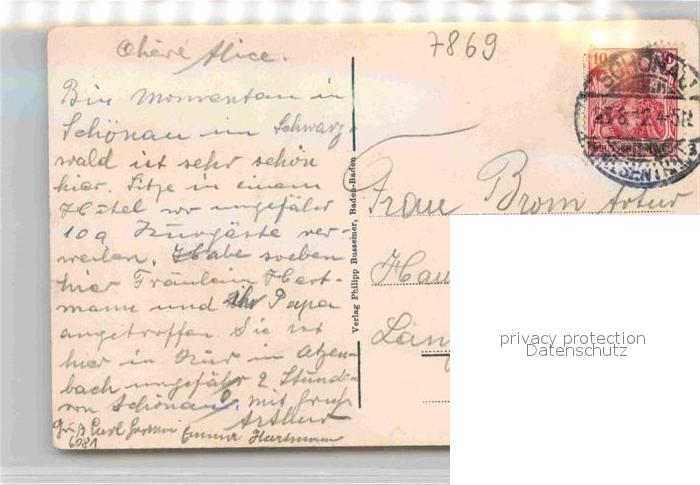 Chère Alice.
7869
Bin momentan in
Schönau im Schwarz-
wald ist sehr schön
hier. Sitze in einem
Hôtel wo ungefähr
100 Kurgäste ver-
weilen. Habe soeben
hier Fräulein Hart-
mann und Ihr Papa
angetroffen. Sie ist
hier in Kur in Atzen-
bach ungefähr 2 Stunden
von Schönau, mit Gruß
Arthur
Gruß
Emma Hartmann
6081
Verlag Philipp Bussemer, Baden-Baden
10
SCHÖNAU
4-5N
WIESENTAL
Frau Brom Artur
Hau
Län
privacy protection
Datenschutz